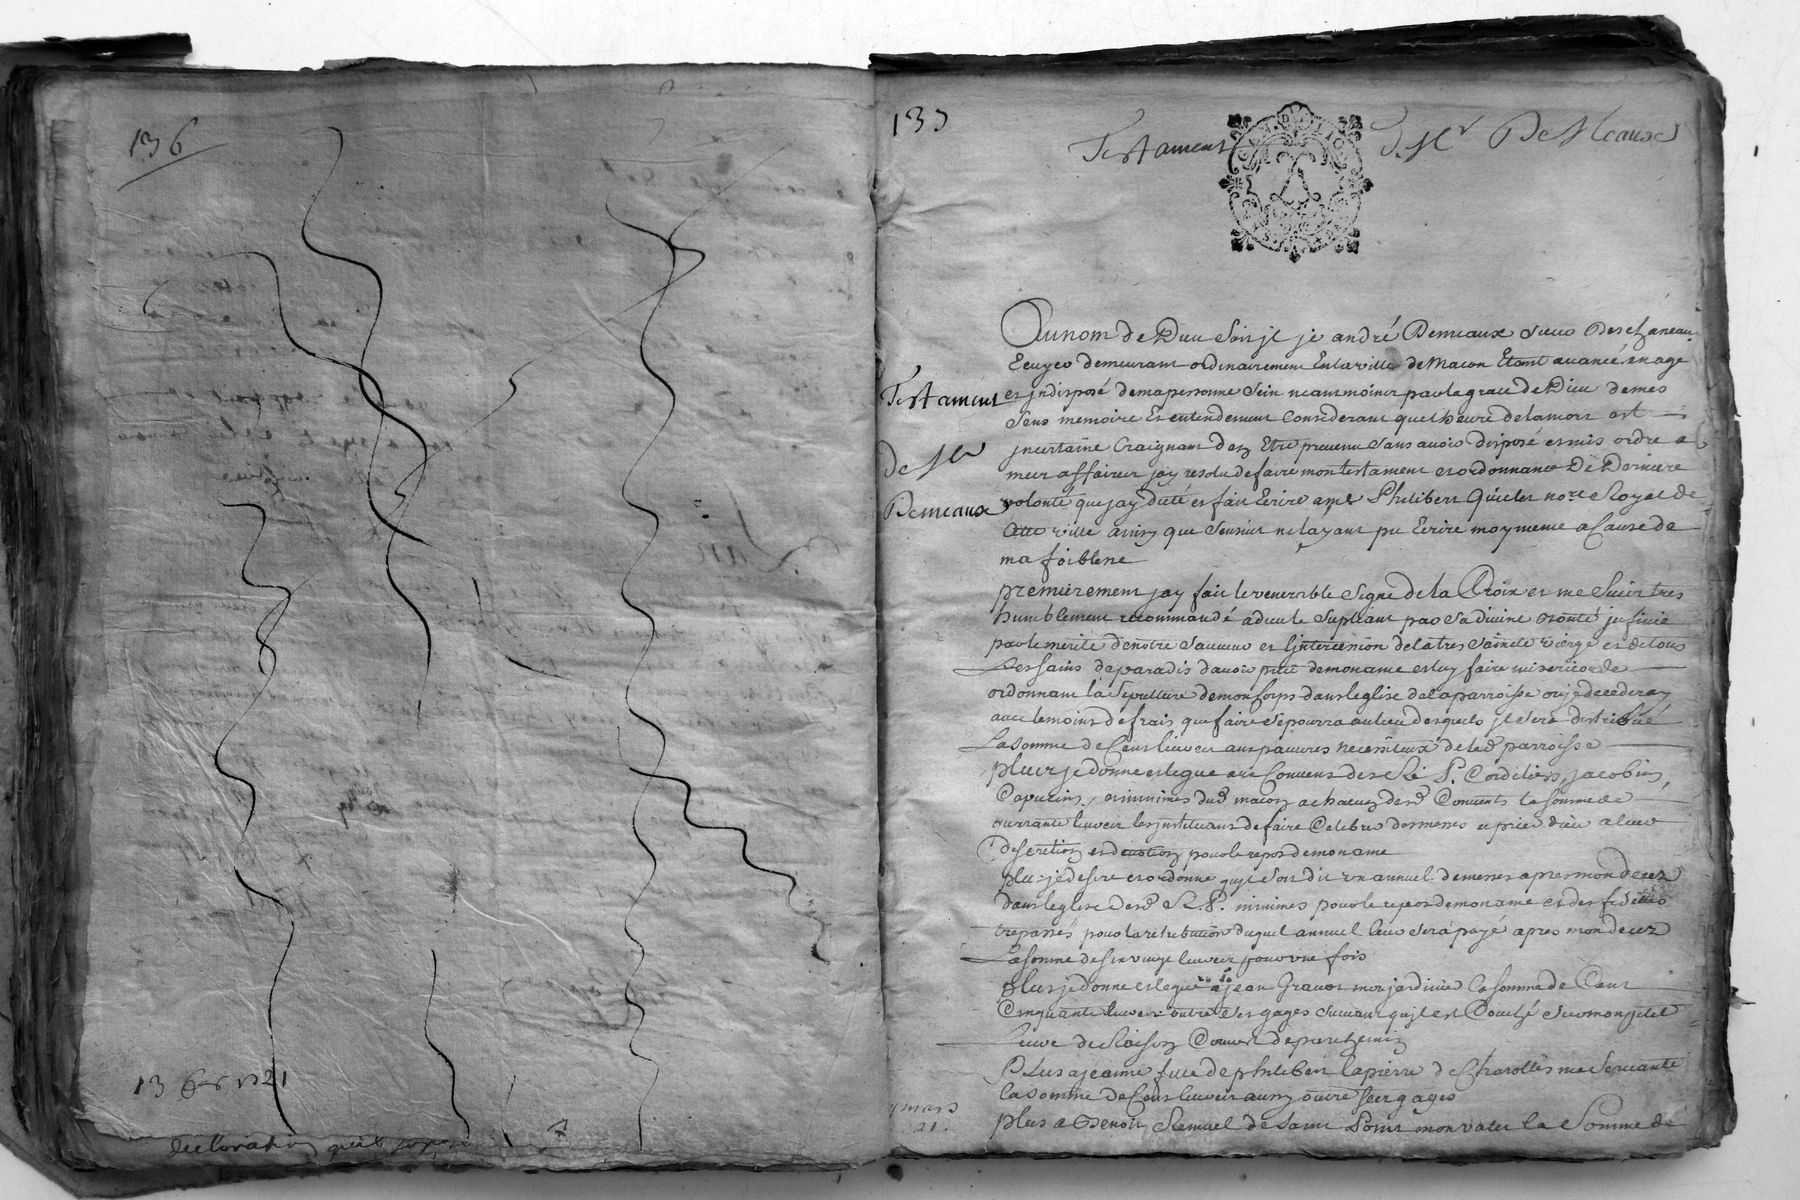 136
13 1721
declaration
137
Testament
De Meaux
Testament
de Mr
Demeaux
Au nom de Dieu soit jl je andré Demeaux sieur Deschaneau
Ecuyer demeurant ordinairement En la ville de Macon Etant avancé en age
et jndisposé de ma personne sein neantmoins par la grace de Dieu de mes
sens memoire Et entendement Considerant que l heure de la mort est
jncertaine Craignant den Etre prevenu sans avoir disposé et mis ordre a
mes affaires jay resolu de faire mon testament et ordonnance De Derniere
volonté que jay dicté et fait Ecrire a me Philibert no.re Royal de
cette ville ainsy que sensuit ne layant pu Ecrire moy meme a Cause de
ma foiblesse
premierement jay fait le venerable signe de la Croix et me suis tres
humblement recommandé a dieu le supliant par sa divine bonté jnfinie
par le merite de notre sauveur et l'intercession de la tres sainte vierge et de tous
Les saints de paradis davoir pitié de mon ame et luy faire misericorde
ordonnant la sepulture de mon Corps dans leglise de la parroisse ou je decederay
avec le moins de frais que faire se pourra au lieu desquels jl sera distribué
La somme de Cent livres aux pauvres necessiteux de lad parroisse
plus je donne et legue aux Couvens des Rd P. Cordeliers, jacobins,
Capucins, et minimes dud macon a chacun desd Couvents la somme de
quarante livres les jnstituans de faire Celebrer des messes et prier dieu a leur
discretion et devotion pour le repos de mon ame
plus je desire et ordonne quil soit dit un annuel de messes apres mon decez
dans leglise desd R. P. minimes pour le repos de mon ame et des fidelles
trepassés pour la retribution duquel annuel leur sera payé apres mon decez
La somme de six vingt livres pour une fois
plus je donne et legue a jean Gravot mon jardinier la somme de Cent
Cinquante livres outre ses gages suivant quil est Couché sur mon petit
Livre de Raison Couvert de parchemin
Plus a jeanne fille de philibert lapierre de Charolles ma servante
la somme de Cent livres aussy outre ses gages
plus a Benoit de saint mon valet la somme de
mars
21.